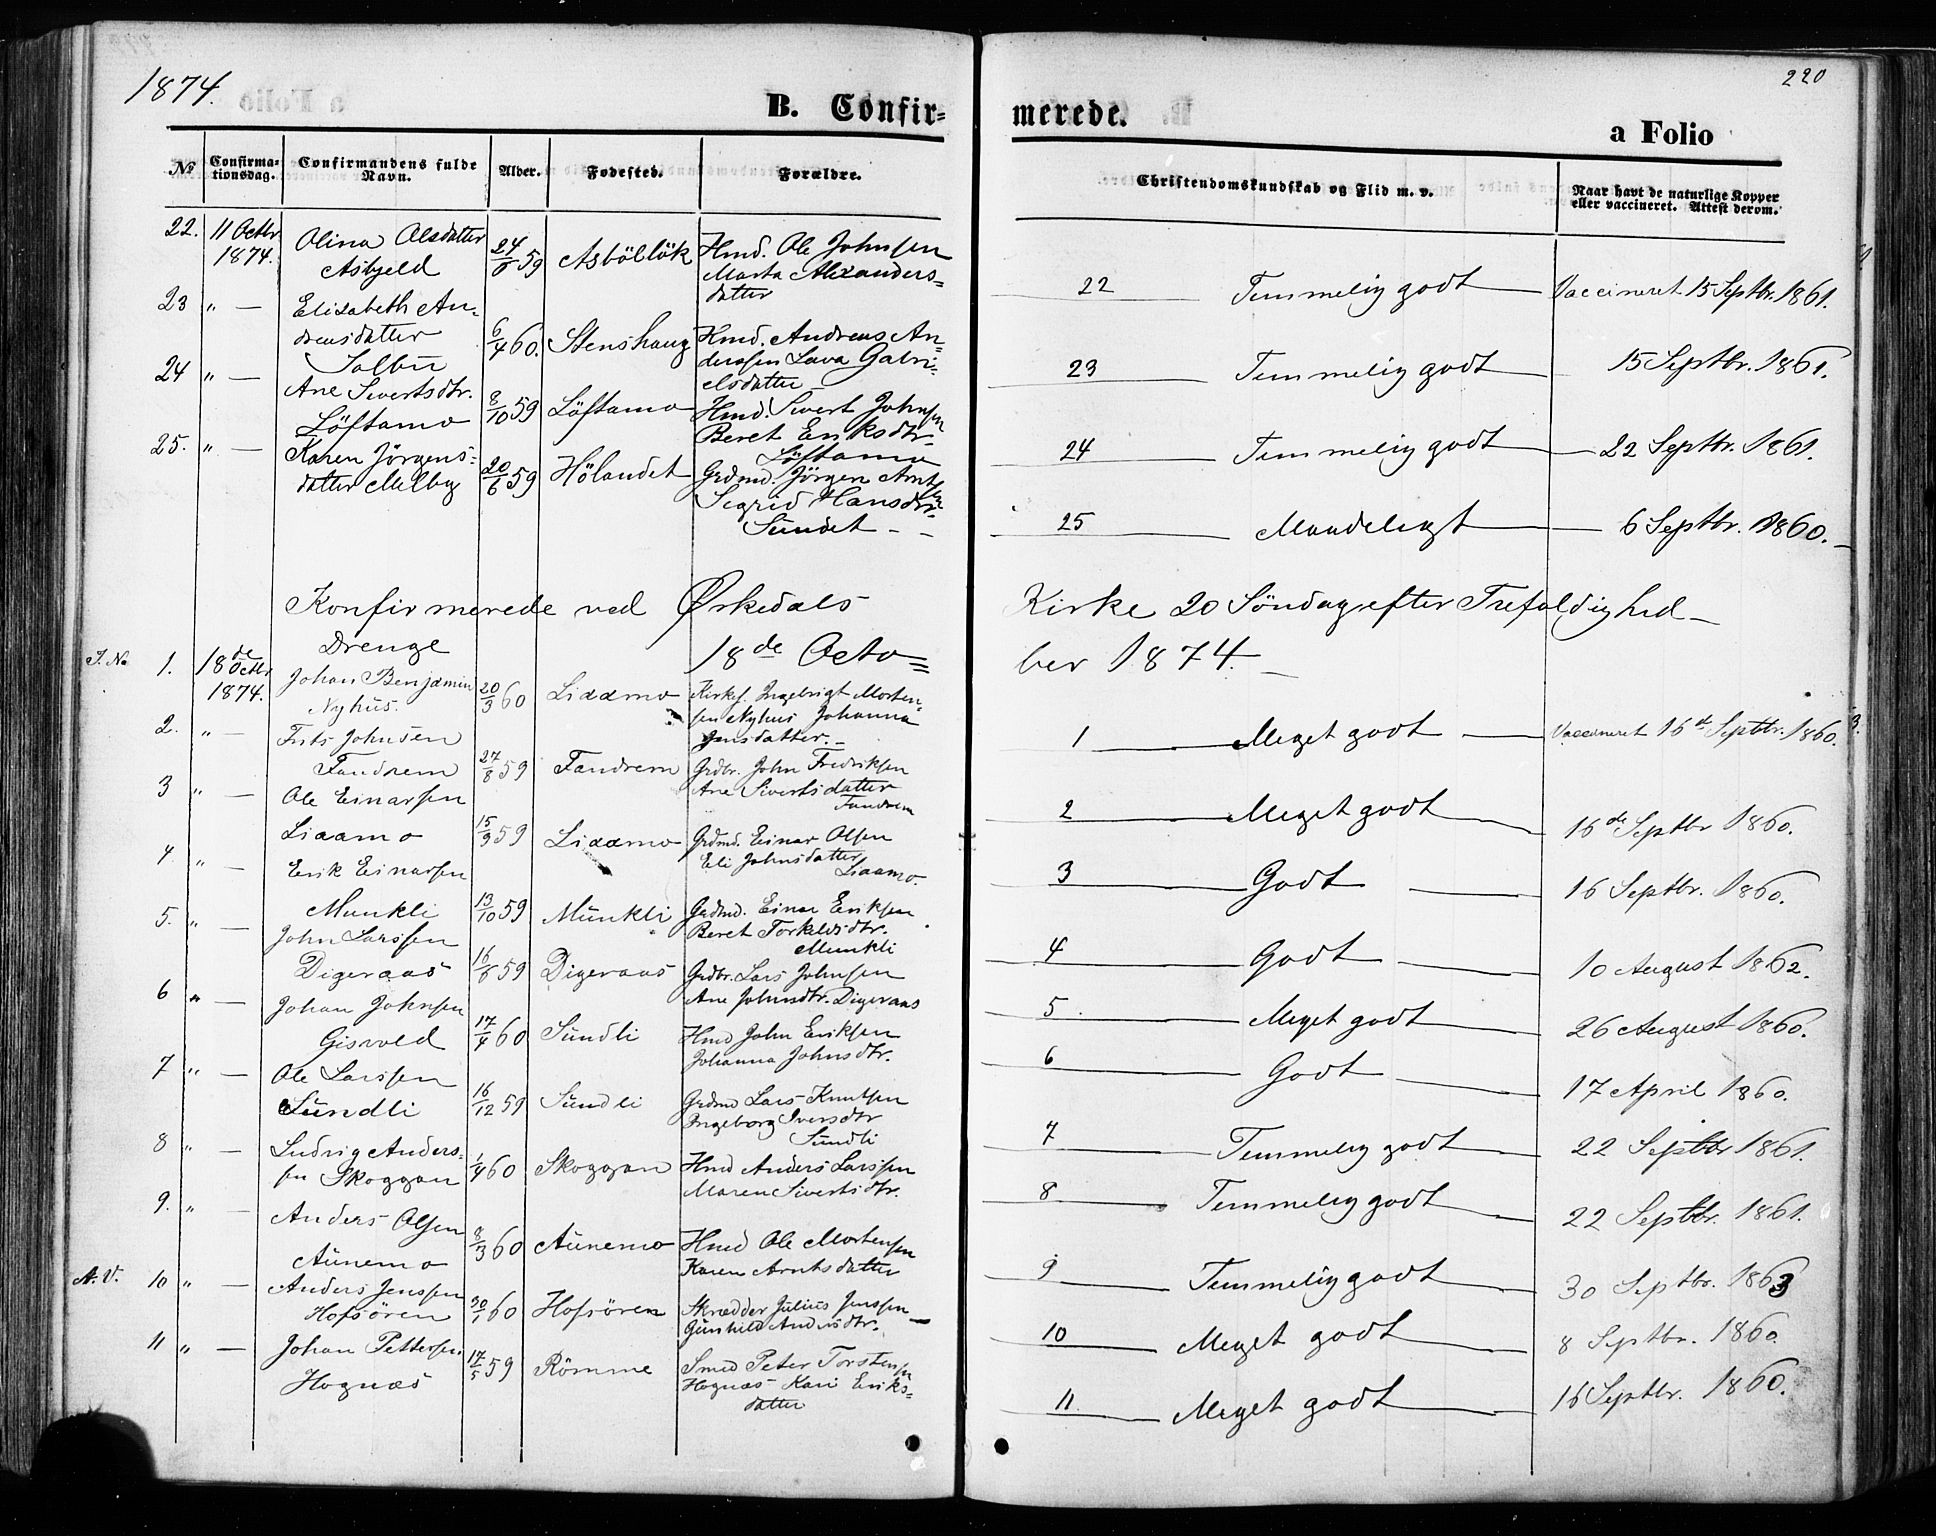 1874.
B. Confir=
№ Confirma-tionsdag. Confirmandens fulde Navn. Alder. Fødested. Forældre.
22. 11 Octbr 1874. Olina Olsdatter 24/6 59 Asböllök Hmd. Ole Johnsen
Asbjeld Marta Alexanders=
datter
23 " — Elisabeth An=
dreasdatter 6/4 60. Stenshaug Hmd. Andreas An=
Solbu derssen Lava Gabri=
elsdatter
24 " — Ane Sivertsdtr. 8/10 59 Löftamo Hmd. Sivert Johnsen
Löftamo Beret Eriksdtr.
Löftamo
25. " — Karen Jörgens= 20/6 59 Hölandet Grdmd. Jörgen Arntsen
datter Melby Sigrid Hansdtr.
Sundet - -
Konfirmerede ved Ørkedals
Drenge 18de Octo=
1. 18de Octbr 1874. Johan Benjamin 20/3 60 Liaamo Kirkes. Ingebrigt Morten=
Nyhus. sen Nyhus Johanna
Jensdatter. -
2. " — Frits Johnsen
Fandrem 27/8 59 Fandrem Grdbr. John Fredriksen
Ane Sivertsdatter
Fandrem
3 " — Ole Einarsen
Liaamo 15/3 59 Liaamo Grdmd. Einar Olsen
Eli Johnsdatter
Liaamo.
4 " — Erik Einarsen
Munkli 13/10 59 Munkli Grdmd. Einar Eriksen
Beret Torkeldsdtr.
Munkli
5. " — John Larssen
Digeraas 16/6 59 Digeraas Grdbr. Lars Johnsen
Ane Johnsdtr. Digeraas
6 " — Johan Johnsen
Gisvold 17/4 60 Sundli Hmd John Eriksen
Johanna Johnsdtr.
7 " — Ole Larssen
Sundli 16/12 59 Sundli Grdmd Lars Knutsen
Ingeborg Iversdtr
Sundli
8 " — Ludvig Anders=
sen Skoggan 1/4 60 Skoggan Hmd Anders Larssen
Maren Sivertsdtr.
9. " — Anders Olsen
Aunemo 8/3 60 Aunemo Hmd Ole Mortensen
Karen Arntsdatter
A. V. 10 " — Anders Jenssen
Hofsören 30/1 60 Hofsören Skrædder Julius Jenssen
Gunhild Andersdtr.
11 " — Johan Pettersen
Hognæs 17/5 59 Römme Smed Peter Torstensen
Hognæs Kari Eriks=
datter
220
merede.
a Folio
Christendomskundskab og Flid m. v. Naar havt de naturlige Kopper
eller vaccineret. Attest derom.
22 Temmelig godt Vaccineret 15 Septbr. 1861.
23 Temmelig godt 15 Septbr. 1861.
24 Temmelig godt 22 Septbr. 1861.
25 Maadeligt 6 Septbr. 1860.
Kirke 20 Söndag efter Trefoldighed
ber 1874.
1 Meget godt Vaccineret 16de Septbr. 1860.
2 Meget godt 16de Septbr 1860.
3 Godt 16 Septbr. 1860.
4 Godt 10 August 1862.
5. Meget godt 26 August 1860.
6 Godt 17 April 1860.
7 Temmelig godt 22 Septbr 1861.
8 Temmelig godt 22 Septbr. 1861.
9 Temmelig godt 30 Septbr. 1863
10 Meget godt 8 Septbr. 1860.
11 Meget godt 16 Septbr. 1860.